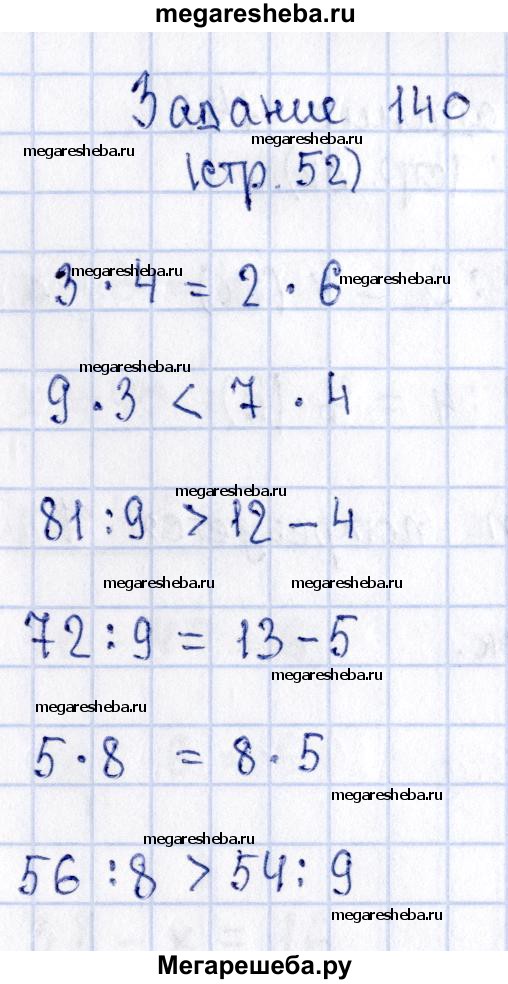 megaresheba.ru
Задание 140
megaresheba.ru
megaresheba.ru
(стр. 52)
megaresheba.ru
megaresheba.ru
3 · 4 = 2 · 6
megaresheba.ru
9 · 3 < 7 · 4
megaresheba.ru
81 : 9 > 12 - 4
megaresheba.ru
megaresheba.ru
72 : 9 = 13 - 5
megaresheba.ru
megaresheba.ru
5 · 8 = 8 · 5
megaresheba.ru
megaresheba.ru
56 : 8 > 54 : 9
megaresheba.ru
Мегарешеба.ру